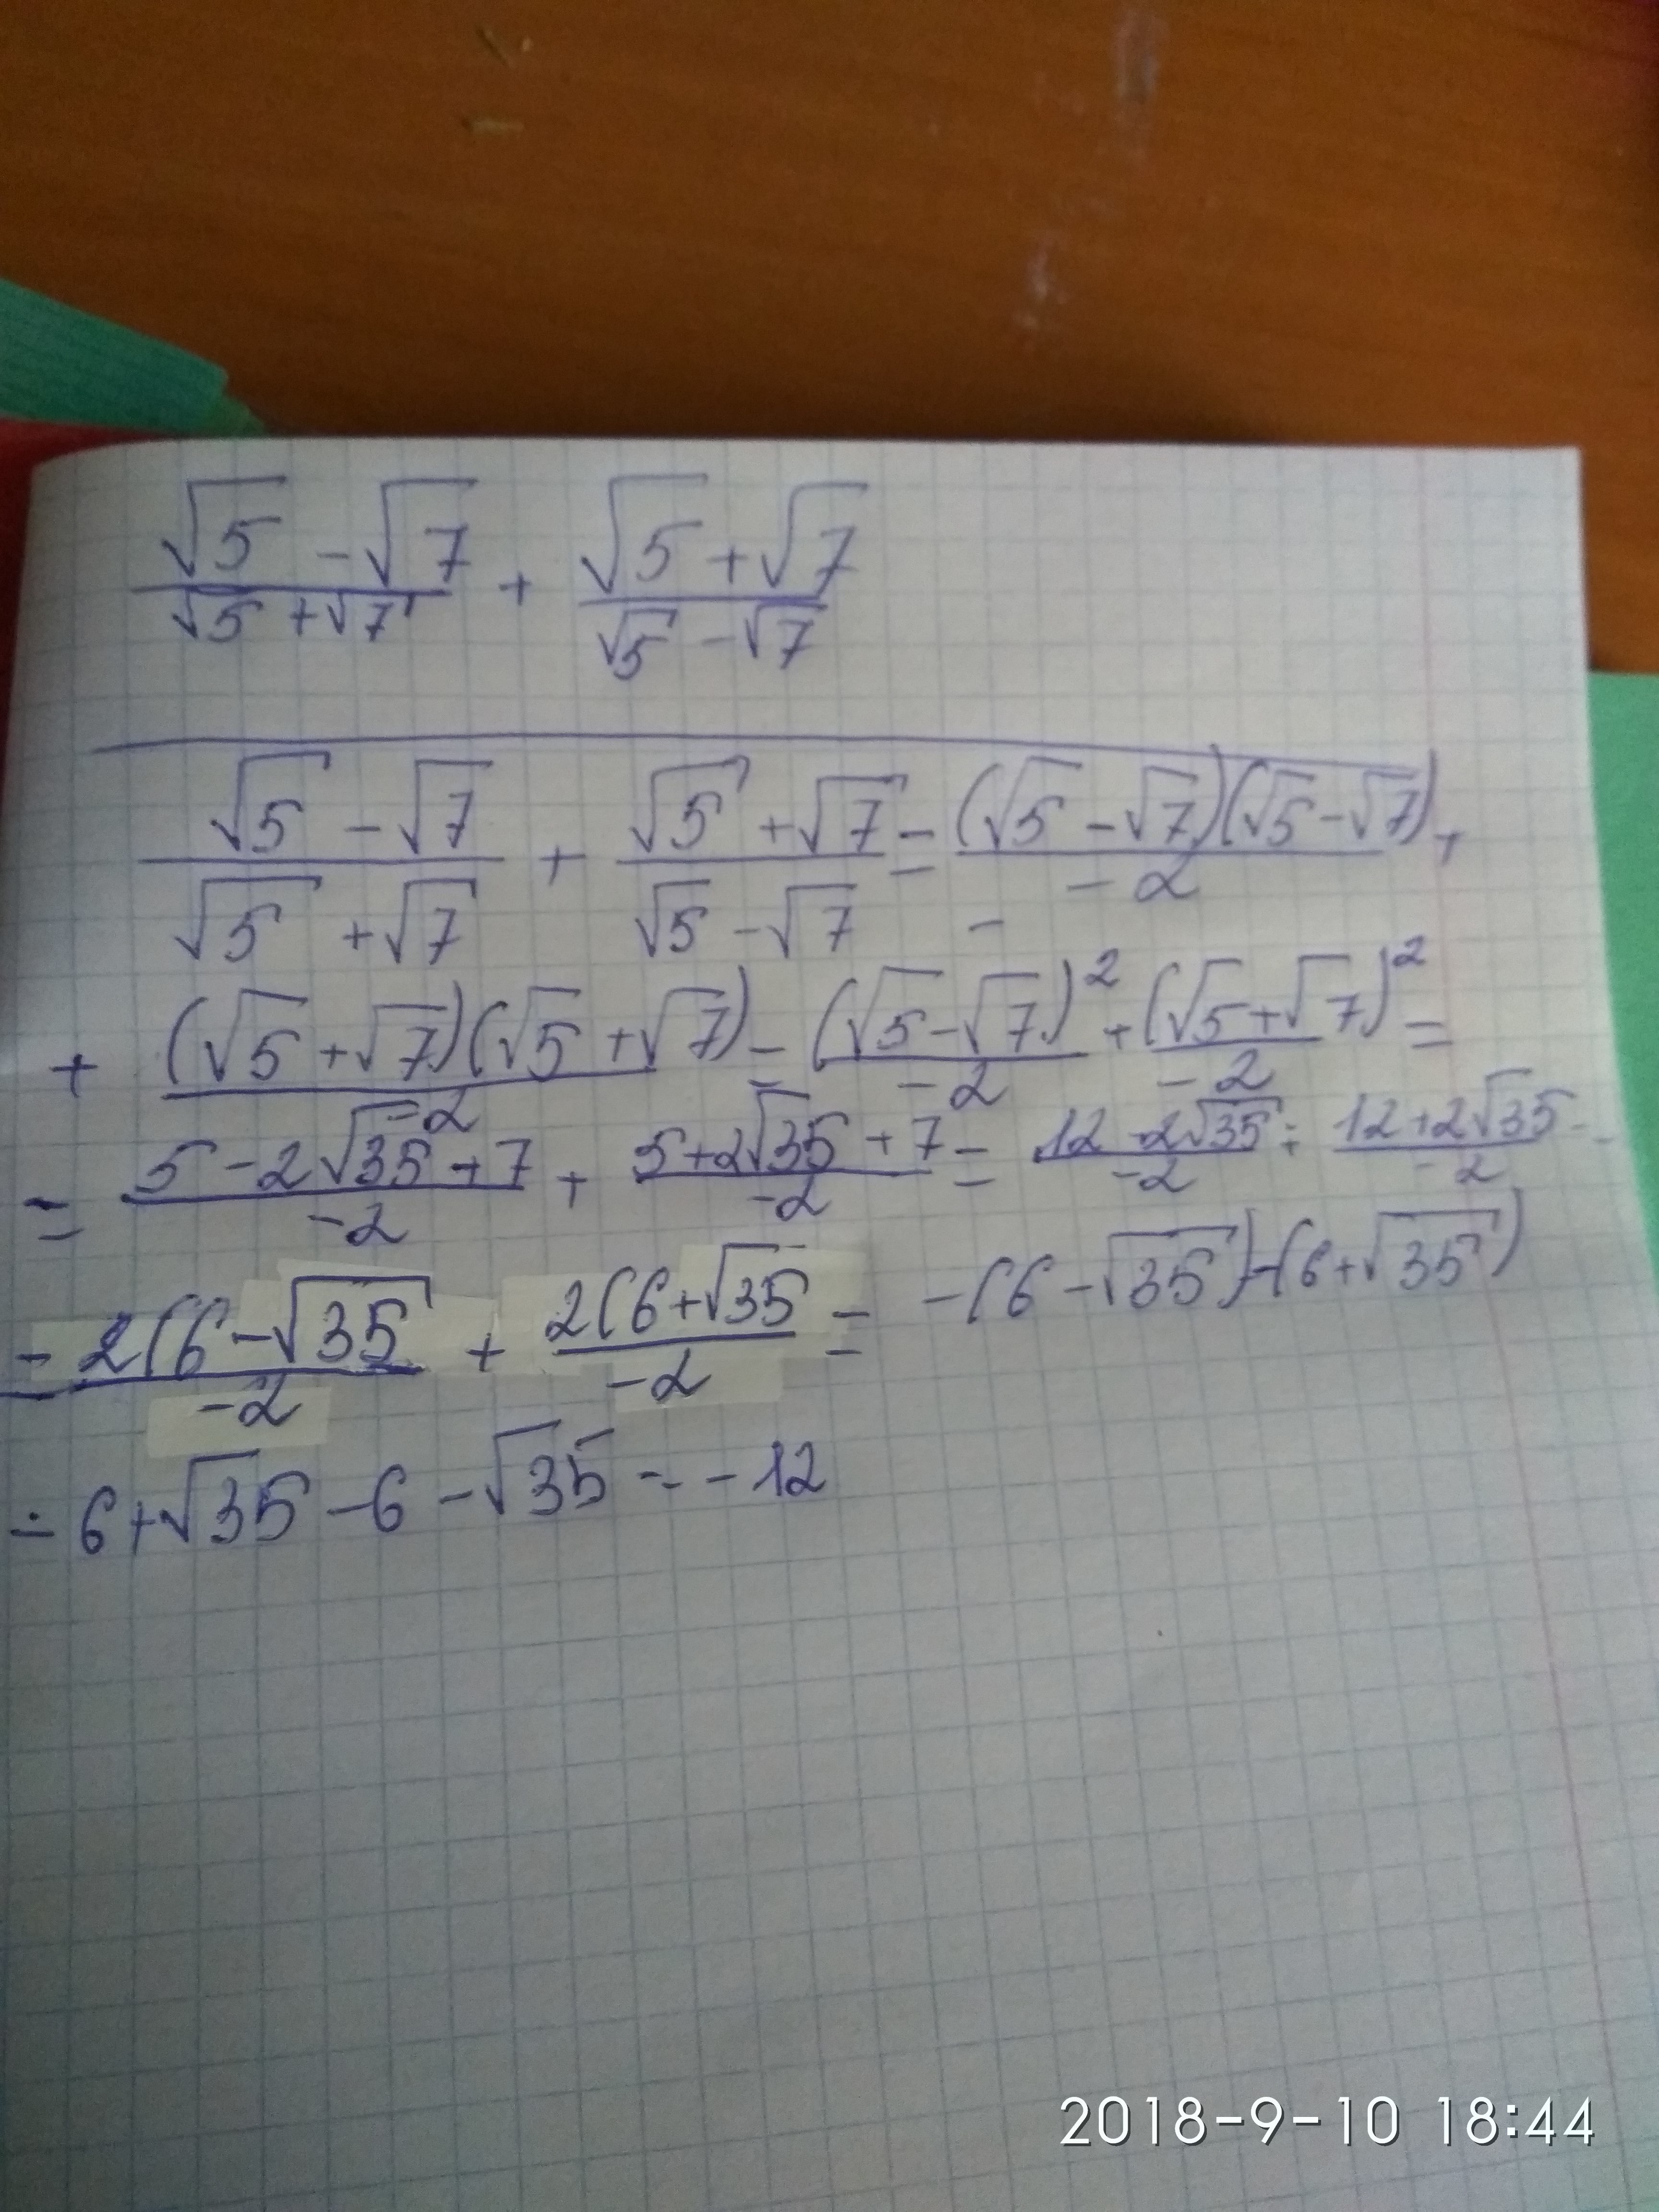 (√5 - √7)/(√5 + √7) + (√5 + √7)/(√5 - √7)
(√5 - √7)/(√5 + √7) + (√5 + √7)/(√5 - √7) = (√5 - √7)(√5 - √7)/-2 +
+ (√5 + √7)(√5 + √7)/-2 = (√5 - √7)²/-2 + (√5 + √7)²/-2 =
= (5 - 2√35 + 7)/-2 + (5 + 2√35 + 7)/-2 = (12 - 2√35)/-2 + (12 + 2√35)/-2 =
= 2(6 - √35/-2 + 2(6 + √35/-2 = -(6 - √35) - (6 + √35)
= 6 + √35 - 6 - √35 = -12
2018-9-10 18:44